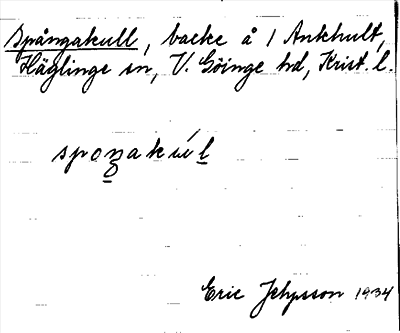 Spångakull, backe å 1 Ankhult,
Häglinge sn, V. Göinge hd, Krist. l.
Eric Jepsson 1934